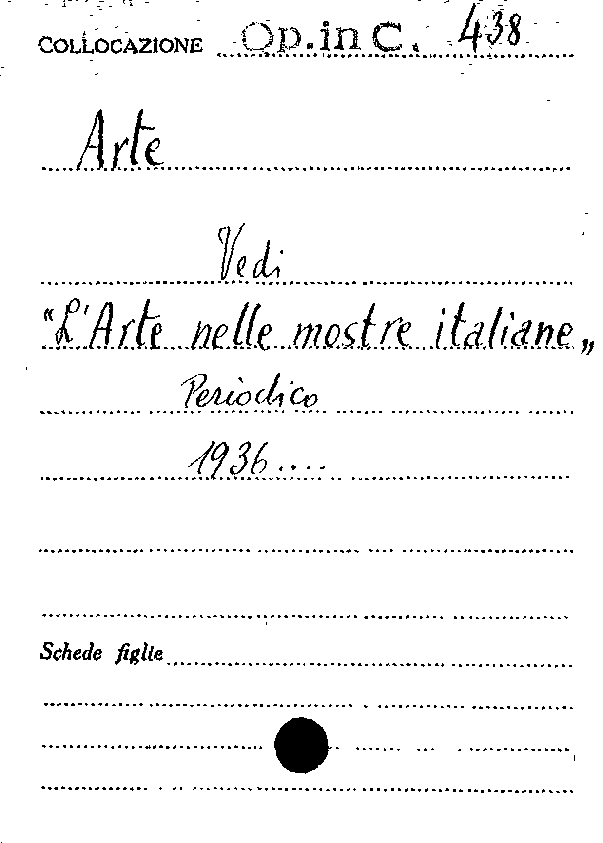 COLLOCAZIONE Op. in C. 438
Arte
Vedi
"L'Arte nelle mostre italiane„
Periodico
1936....
Schede figlie